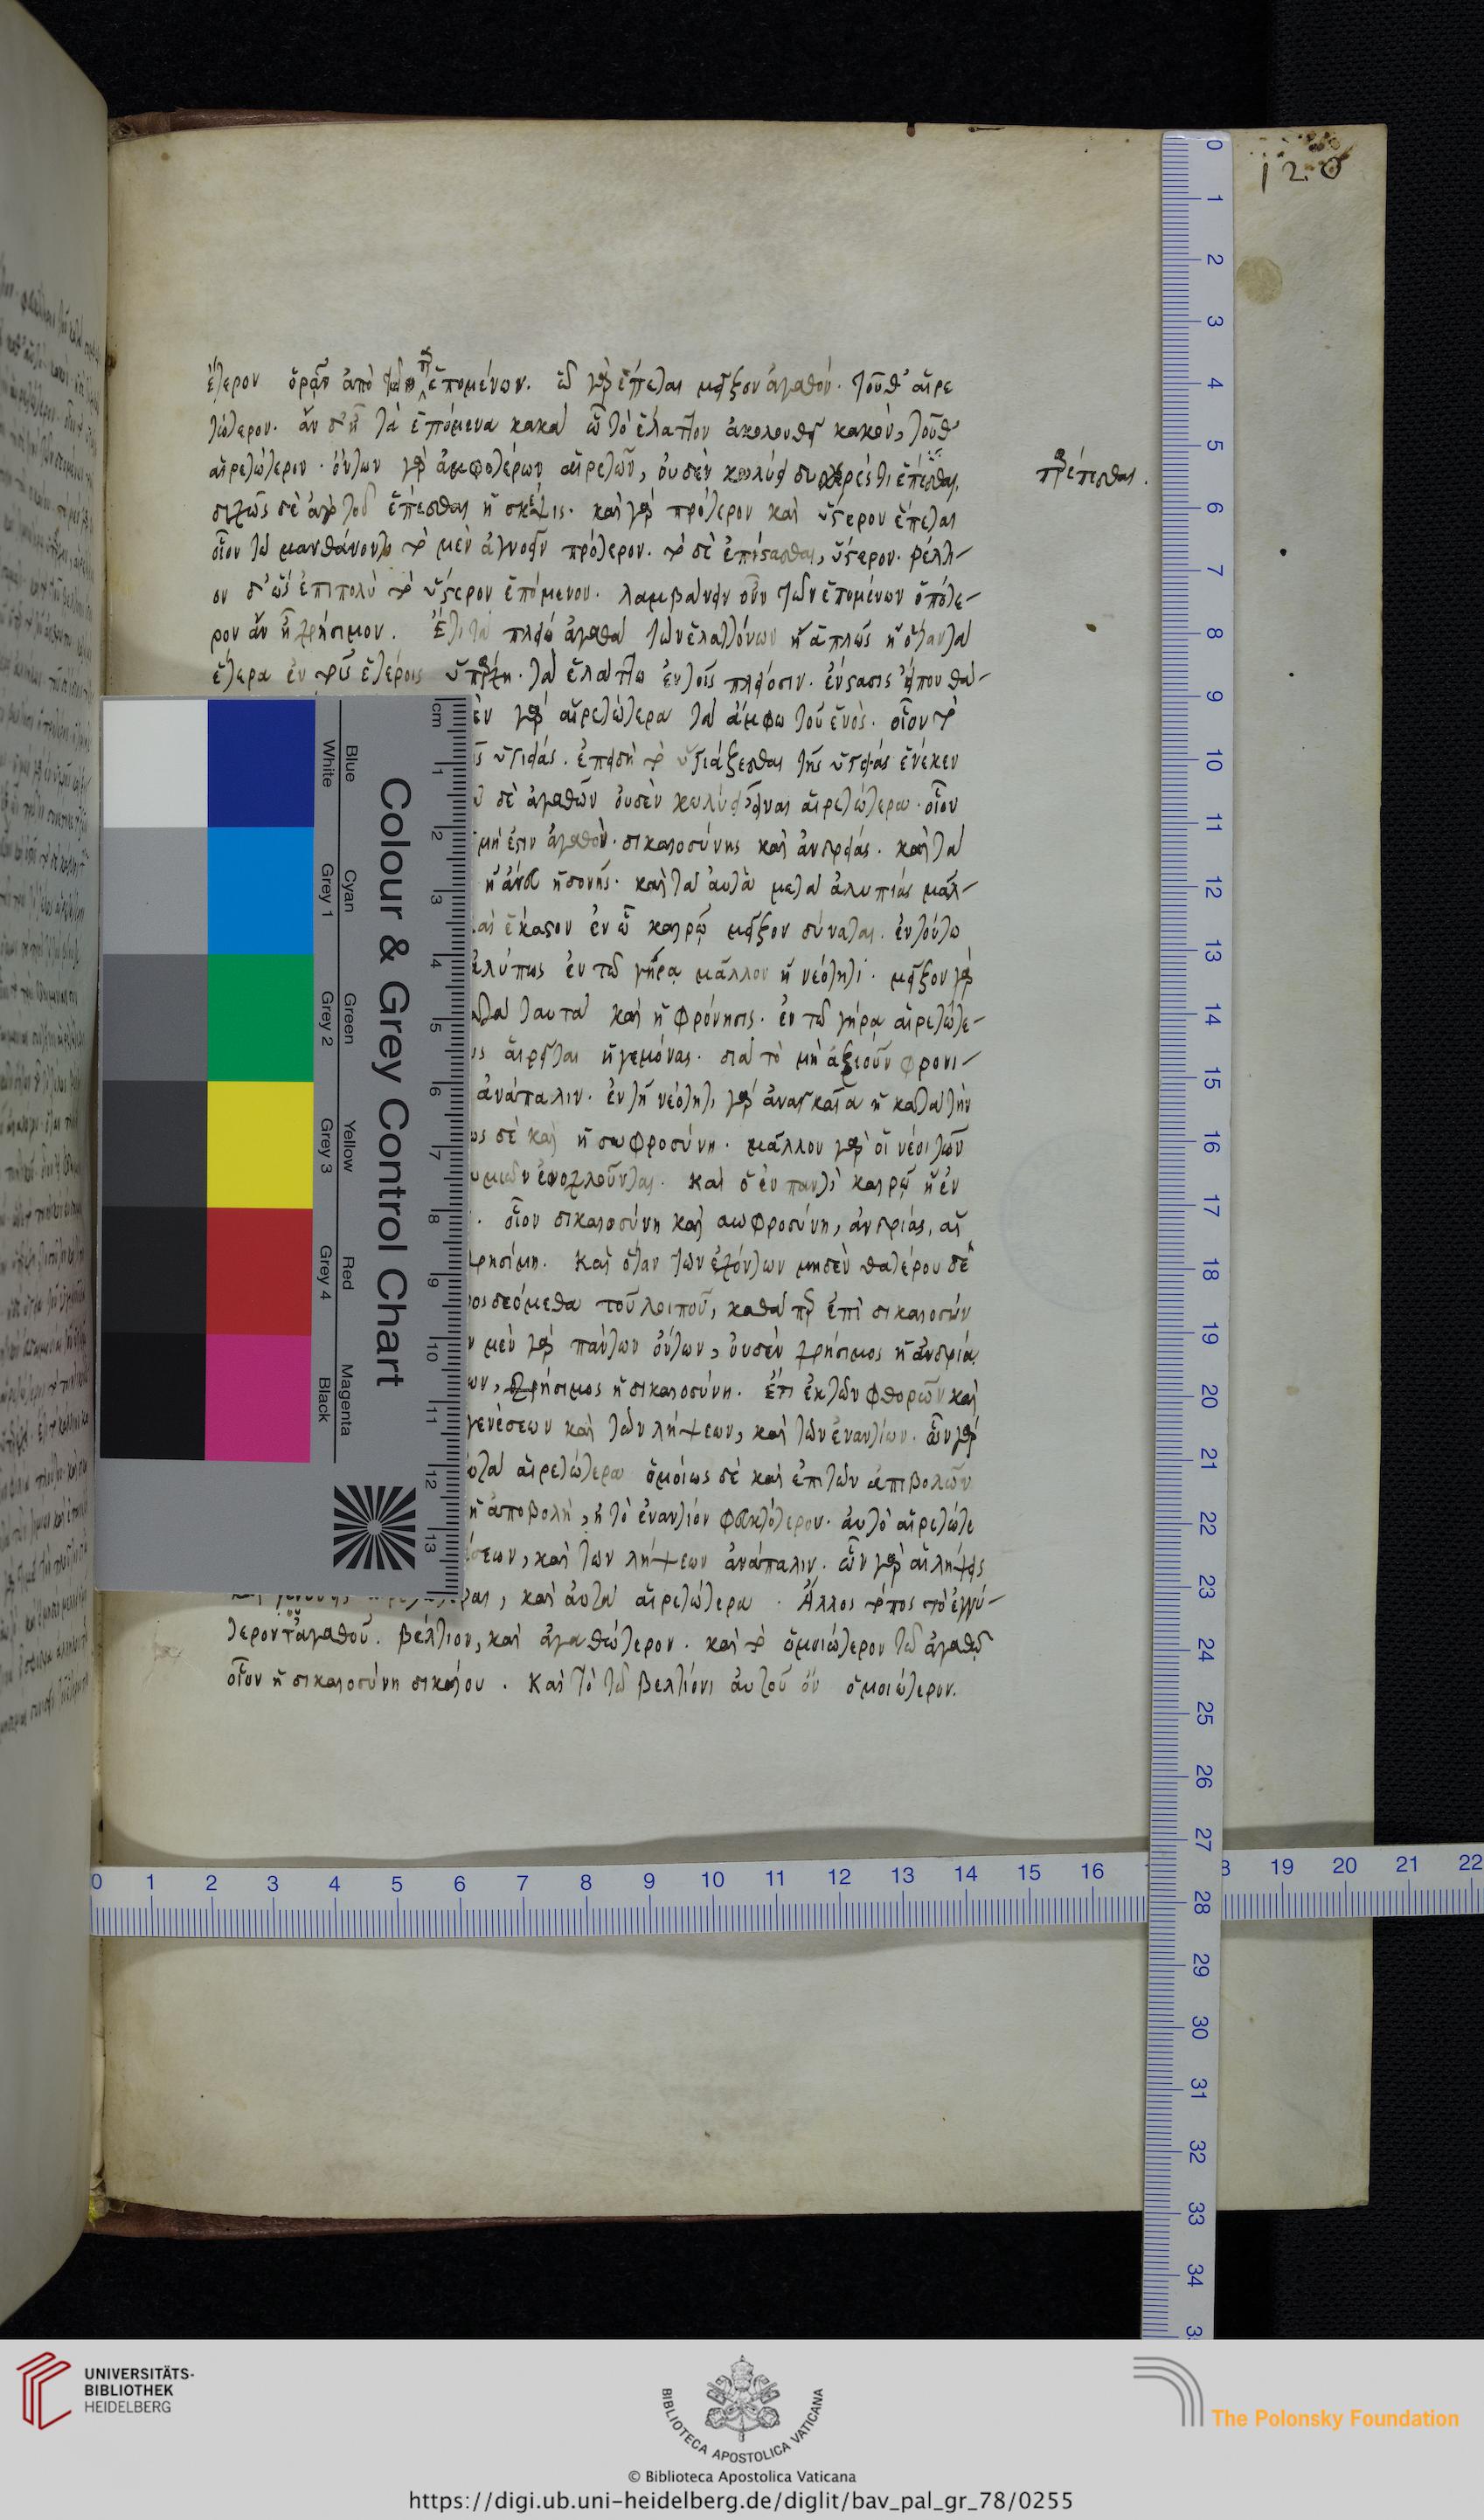 ἕτερον ὁρᾶν ἀπὸ τῶν παρεπομένων. ᾧ γὰρ ἕπεται μεῖζον ἀγαθόν. τοῦθ' αἱρε
τώτερον. ἂν δ' ᾖ τὰ ἑπόμενα κακὰ ᾧ τὸ ἔλαττον ἀκολουθεῖ κακὸν, τοῦθ'
αἱρετώτερον. ὄντων γὰρ ἀμφοτέρων αἱρετῶν, οὐδὲν κωλύει δυσχερές τι ἕπεσθαι.
παρέπεσθαι.
διχῶς δὲ ἀπὸ τοῦ ἕπεσθαι ἡ σκέψις. καὶ γὰρ πρότερον καὶ ὕστερον ἕπεται
οἷον τῷ μανθάνοντι τὸ μὲν ἀγνοεῖν πρότερον. τὸ δὲ ἐπίστασθαι, ὕστερον. βέλτι-
ον δ' ὡς ἐπιτοπολὺ τὸ ὕστερον ἑπόμενον. λαμβάνειν οὖν τῶν ἑπομένων ὁπότε-
ρον ἂν ᾖ χρήσιμον. Ἔτι τὰ πλείω ἀγαθὰ τῶν ἐλαττόνων ἢ ἁπλῶς ἢ ὅταν τὰ
ἕτερα ἐν τοῖς ἑτέροις ὑπάρχῃ. τὰ ἐλάττω ἐν τοῖς πλείοσιν. ἔνστασις εἴπου θά-
ἐν γὰρ αἱρετώτερα τὰ ἄμφω τοῦ ἑνός. οἷον τὸ
ὑγιείας. ἐπειδὴ τὸ ὑγιάζεσθαι τῆς ὑγείας ἕνεκεν
δὲ ἀγαθῶν οὐδὲν κωλύει εἶναι αἱρετώτερα. οἷον
μή ἐστιν ἀγαθὸν. δικαιοσύνης καὶ ἀνδρείας. καὶ τὰ
ἢ ἄνευ ἡδονῆς. καὶ τὰ αὐτὰ μετὰ ἀλυπίας μᾶλ-
καὶ ἕκαστον ἐν ᾧ καιρῷ μεῖζον δύναται. ἐν τούτῳ
ἀλύπως ἐν τῷ γήρᾳ μᾶλλον ἢ νεότητι. μεῖζον γὰρ
ταῦτα καὶ ἡ φρόνησις. ἐν τῷ γήρᾳ αἱρετώτε-
αἱρεῖται ἡγεμόνας. διὰ τὸ μὴ ἀξιοῦν φρονί-
ἀνάπαλιν. ἐν τῇ νεότητι γὰρ ἀναγκαῖα ἡ κατὰ τὴν
ως δὲ καὶ ἡ σωφροσύνη. μᾶλλον γὰρ οἱ νέοι τῶν
υμιῶν ἐνοχλοῦνται. Καὶ ὃ ἐν παντὶ καιρῷ ἢ ἐν
οἷον δικαιοσύνη καὶ σωφροσύνη, ἀνδρίας. αἱ
χρησίμη. Καὶ ὅταν τῶν ἐχόντων μηδὲν θατέρου δε
προσδεόμεθα τοῦ λοιποῦ, καθάπερ ἐπὶ δικαιοσύν
ν μὲν γὰρ πάντων ὄντων, οὐδὲν χρήσιμος ἡ ἀνδρία
ων, χρήσιμος ἡ δικαιοσύνη. Ἔτι ἐκ τῶν φθορῶν καὶ
γενέσεων καὶ τῶν λήψεων, καὶ τῶν ἐναντίων. ὧν γὰρ
αἱρετώτερα ὁμοίως δὲ καὶ ἐπὶ τῶν ἀποβολῶν
ἡ ἀποβολὴ, ἢ τὸ ἐναντίον φευκτότερον. αὐτὸ αἱρετώτε
σεων, καὶ τῶν λήψεων ἀνάπαλιν. ὧν γὰρ αἱ λήψεις
καὶ αὐτὰ αἱρετώτερα. Ἄλλος τόπος τὸ ἐγγύ-
τερον τἀγαθοῦ. βέλτιον, καὶ ἀγαθώτερον. καὶ τὸ ὁμοιότερον τῷ ἀγαθῷ
οἷον ἡ δικαιοσύνη δικαίου. Καὶ τὸ τῷ βελτίονι αὑτοῦ ὂν ὁμοιότερον.
120
Colour & Grey Control Chart
Blue Cyan Green Yellow Red Magenta
White Grey 1 Grey 2 Grey 3 Grey 4 Black
cm 1 2 3 4 5 6 7 8 9 10 11 12 13
0 1 2 3 4 5 6 7 8 9 10 11 12 13 14 15 16 17 18 19 20 21 22 23 24 25 26 27 28 29 30 31 32 33 34
0 1 2 3 4 5 6 7 8 9 10 11 12 13 14 15 16 19 20 21 22
UNIVERSITÄTS-
BIBLIOTHEK
HEIDELBERG
BIBLIOTHECA APOSTOLICA VATICANA
© Biblioteca Apostolica Vaticana
The Polonsky Foundation
https://digi.ub.uni-heidelberg.de/diglit/bav_pal_gr_78/0255